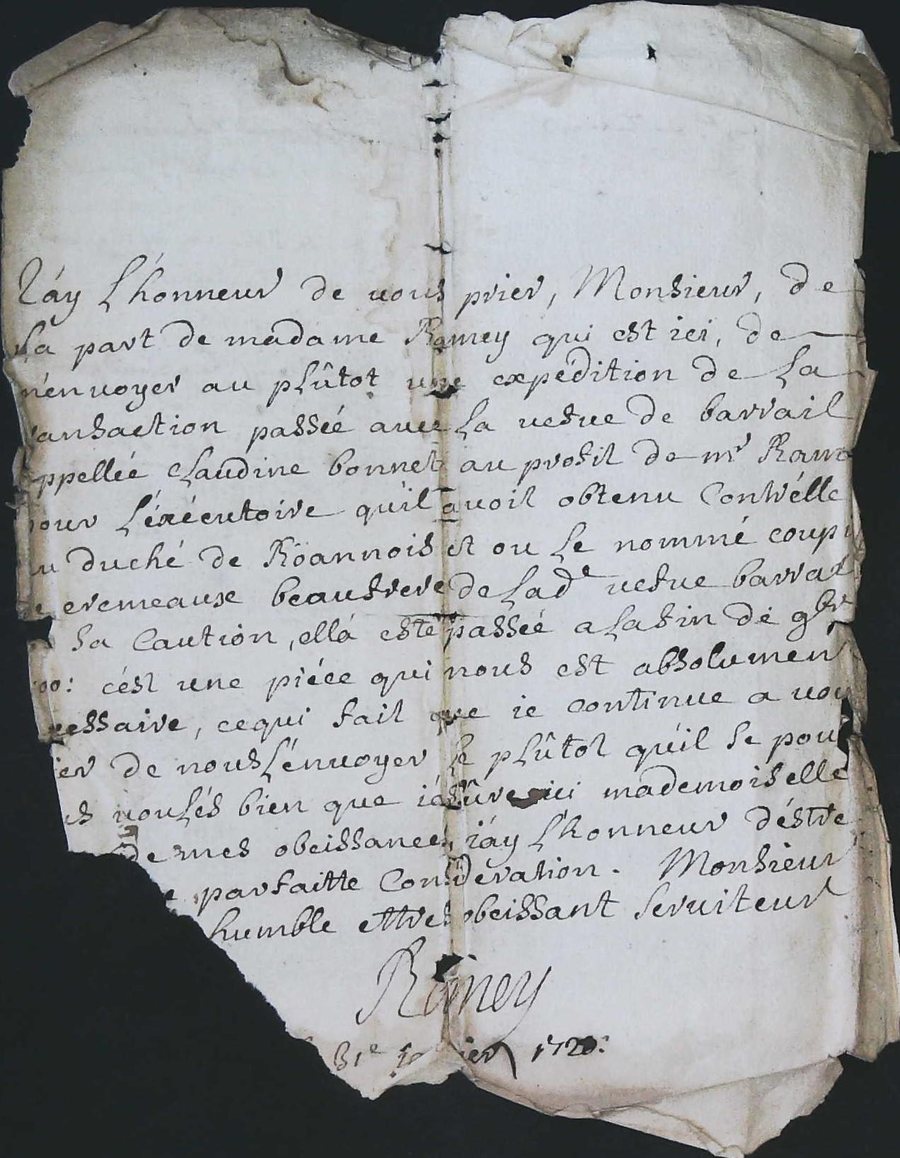 J'ay L'honneur de vous prier, Monsieur, de
La part de madame Ramey qui est ici, de
m'envoyer au plûtot une expedition de La
ransaction passée avec La vefve de barrail
ppellée Claudine bonnet au profit de mr Ram
our L'éxécutoire qu'il avoit obtenu Contr'élle
u duché de Röannois et ou Le nommé coup
cremeaux beaufrere de Lad.e vefve barral
Sa Caution, ellá este passée a La fin de gbr
00: cést une piéce qui nous est absolumen
essaire, cequi fait que ie continue a vou
ier de nous L'envoyer Le plûtot qu'il se pou
s voulés bien que i'assûre ici mademoiselle
de mes obeissances, i'ay L'honneur d'éstre
parfaitte Consideration. Monsieur
humble et tres obeissant Serviteur
Ramey
31e ier 1720: